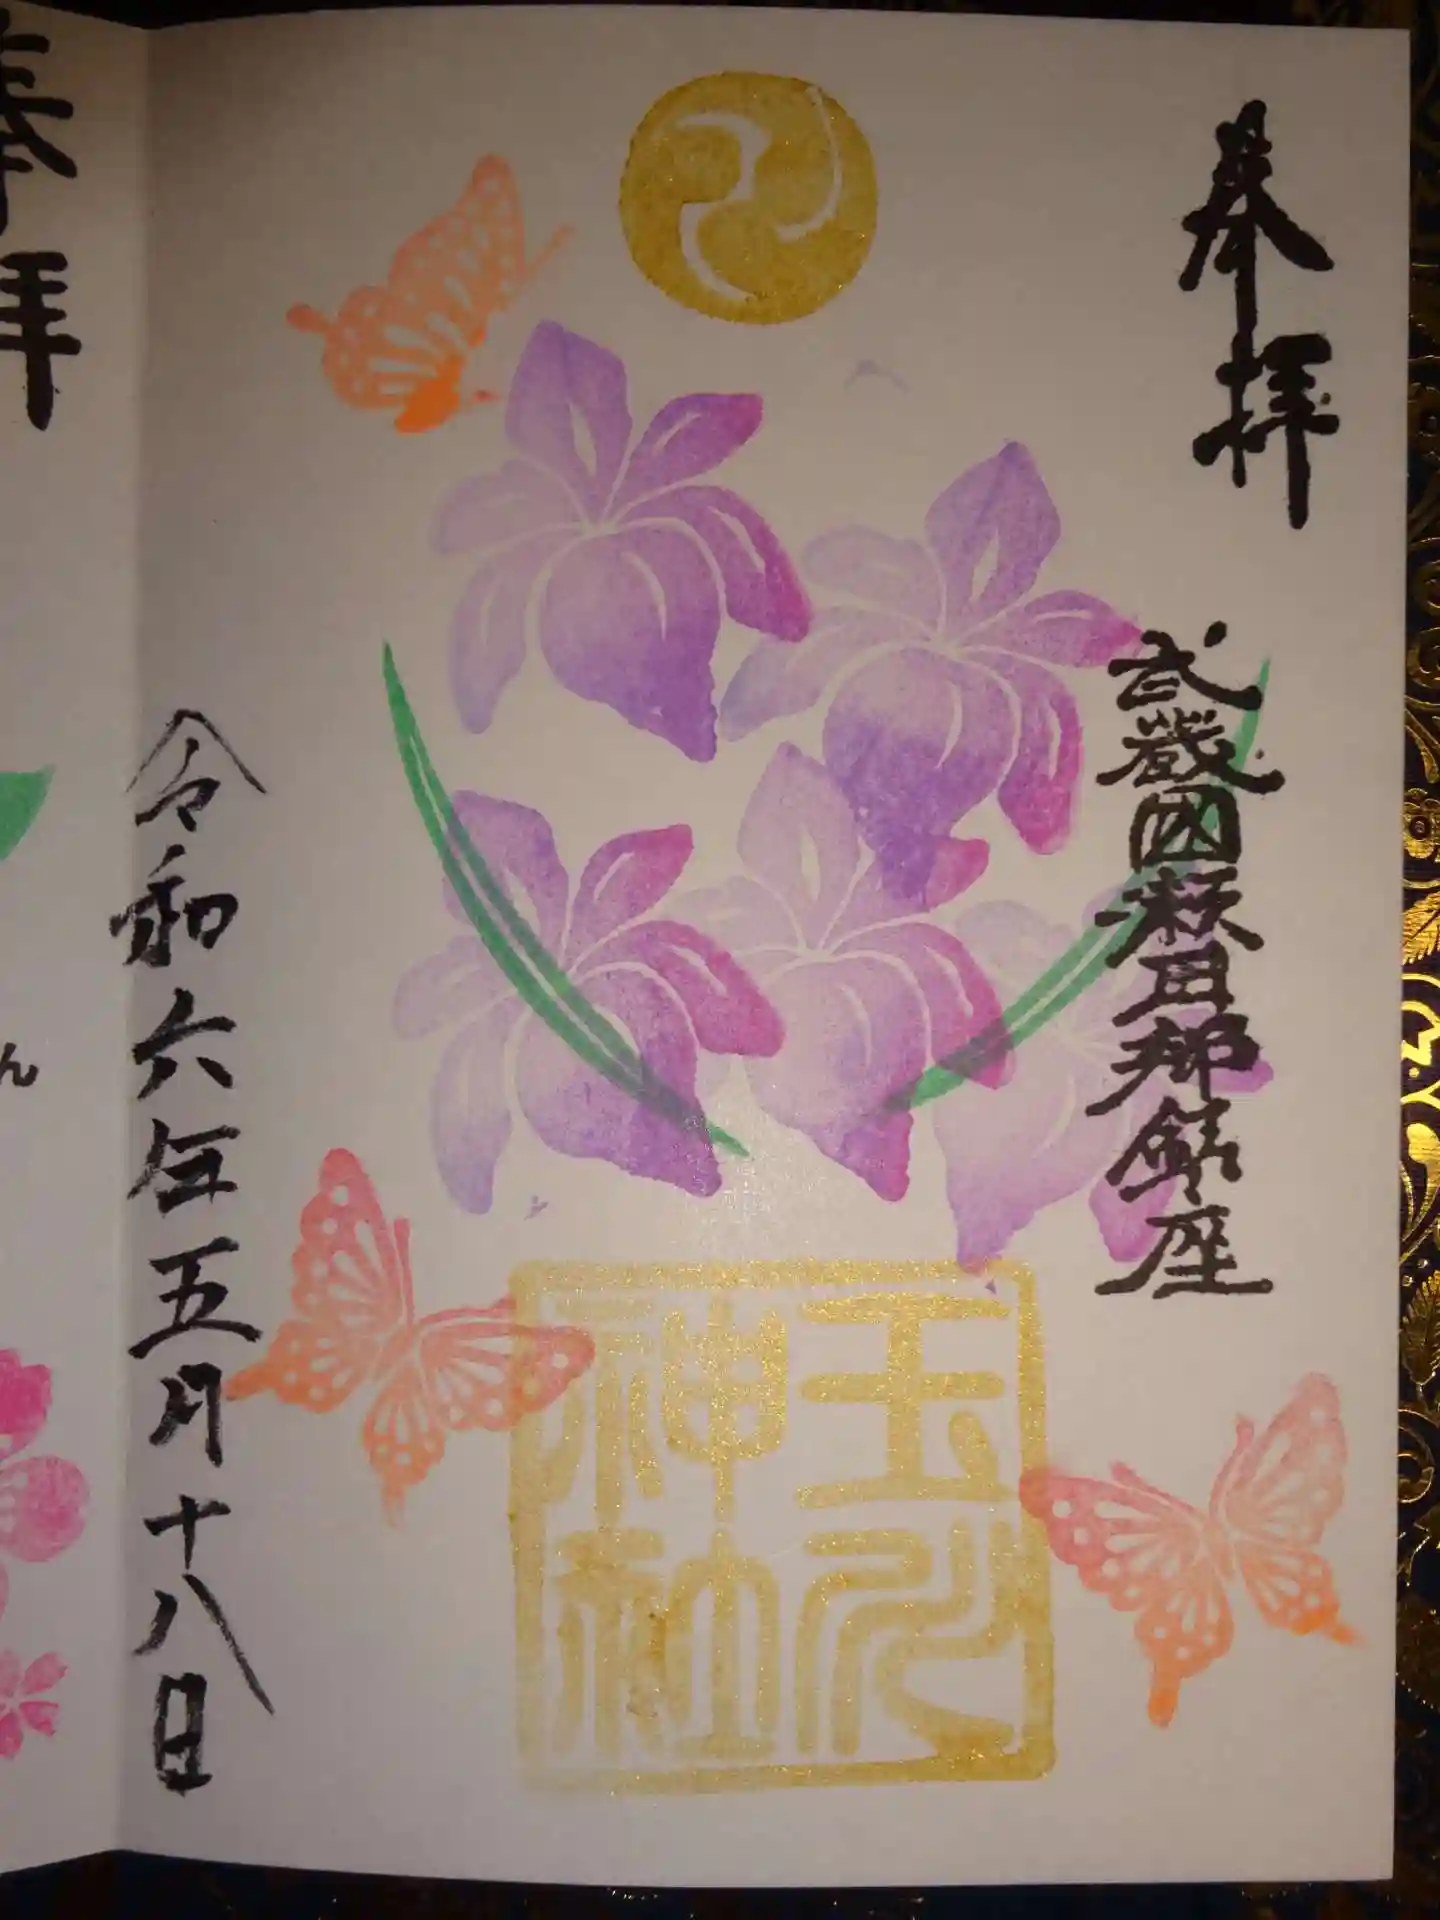 奉拝
武蔵國瀬田郷鎮座
玉川
神社
令和六年五月十八日
奉拝
ん